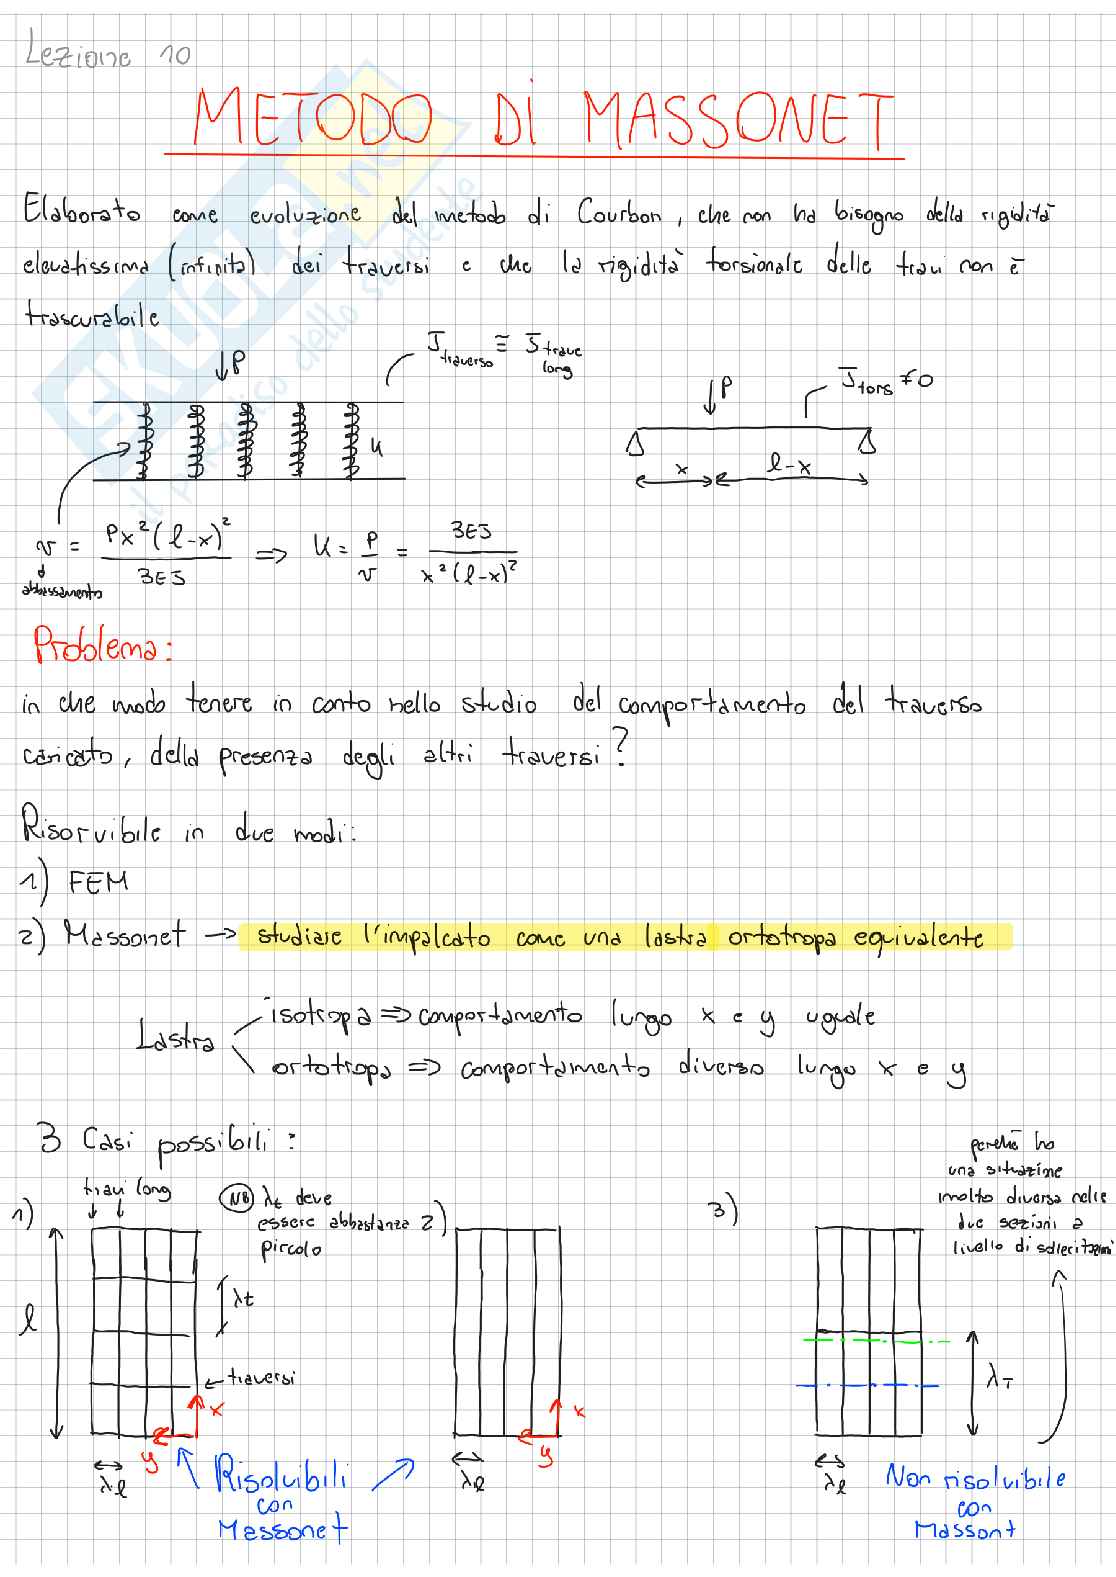 Lezione 10
METODO DI MASSONET
Elaborato come evoluzione del metodo di Courbon, che non ha bisogno della rigidità
elevatissima (infinita) dei traversi e che la rigidità torsionale delle travi non è
trascurabile
P
J traverso ≅ J trave long
k
P
J tors ≠ 0
x
l-x
v = Px²(l-x)² / 3EJ => K = P/v = 3EJ / x²(l-x)²
abbassamento
Problema:
in che modo tenere in conto nello studio del comportamento del traverso
caricato, della presenza degli altri traversi?
Risorvibile in due modi:
1) FEM
2) Massonet → studiare l'impalcato come una lastra ortotropa equivalente
Lastra
isotropa => comportamento lungo x e y uguale
ortotropa => comportamento diverso lungo x e y
3 Casi possibili:
1)
travi long
NB λt deve
essere abbastanza
piccolo
l
λt
traversi
x
y
λl
2)
x
y
λl
Risolvibili
con
Massonet
3)
perché ho
una situazione
molto diversa nelle
due sezioni a
livello di sollecitazioni
λT
λl
Non risolvibile
con
Massont
SKUOLA.net
il paradiso dello studente